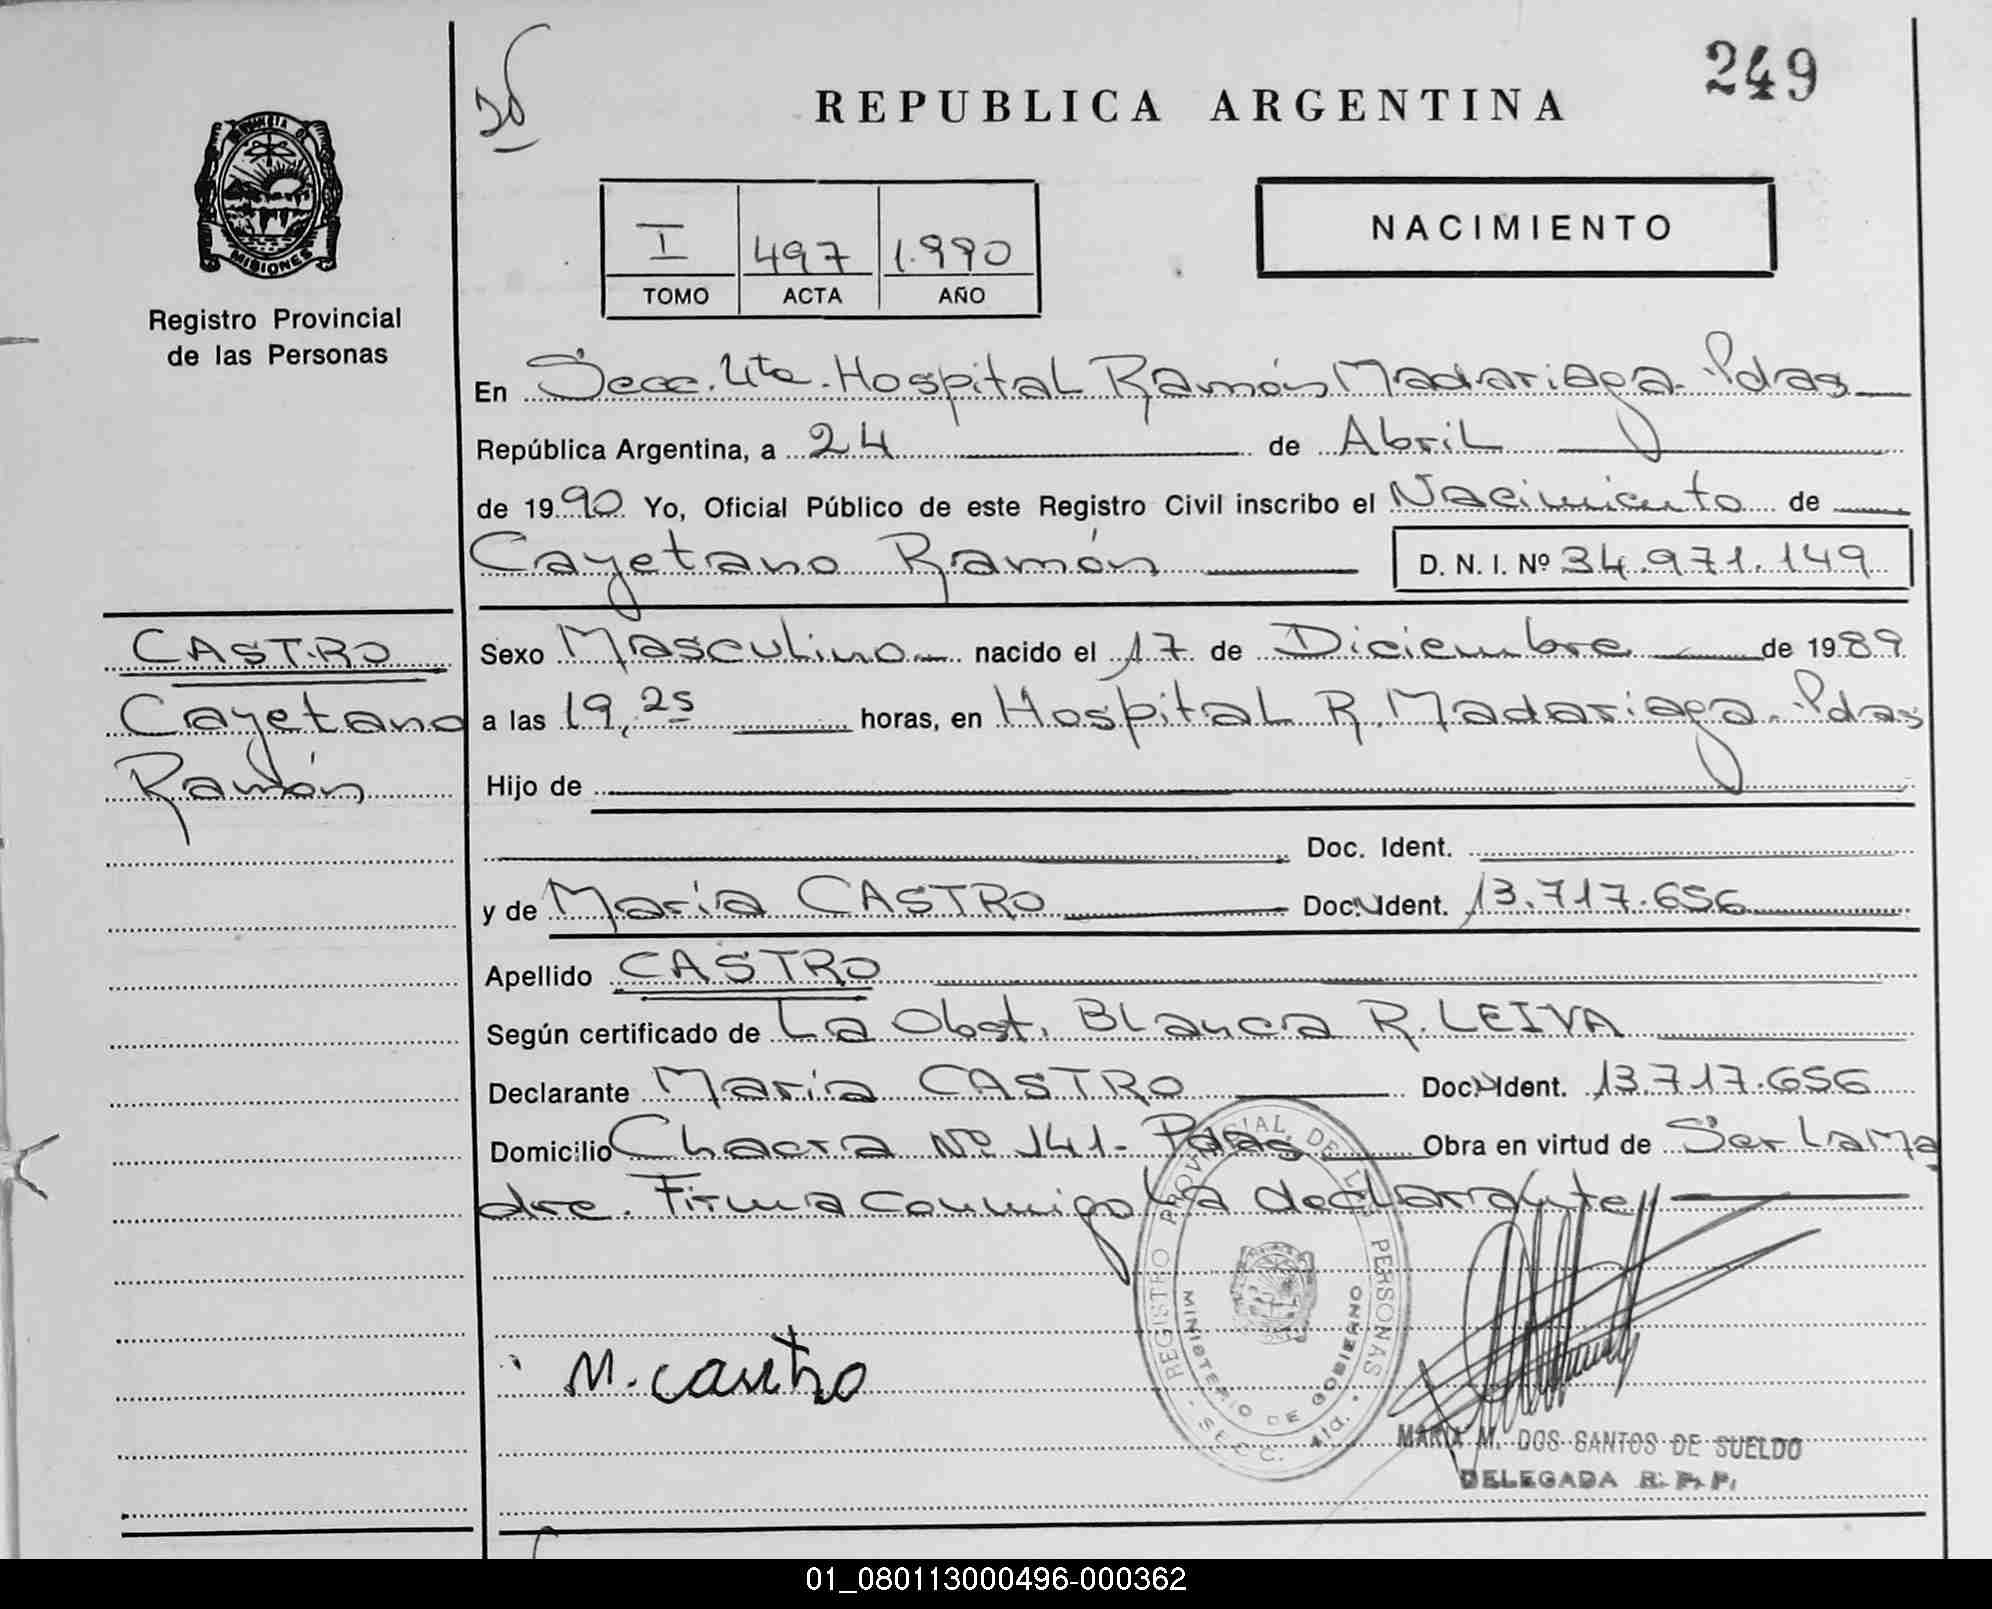 249
REPUBLICA ARGENTINA
PROVINCIA DE
MISIONES
NACIMIENTO
I 497 1.990
TOMO ACTA AÑO
Registro Provincial
de las Personas
En Secc. 4ta. Hospital Ramón Madariaga. Pdas
República Argentina, a 24 de Abril
de 1990 Yo, Oficial Público de este Registro Civil inscribo el Nacimiento de
Cayetano Ramón D. N. I. Nº 34.971.149
CASTRO
Cayetano
Ramón
Sexo Masculino nacido el 17 de Diciembre de 1989
a las 19,25 horas, en Hospital R. Madariaga. Pdas
Hijo de
Doc. Ident.
y de María CASTRO Doc. Ident. 13.717.656
Apellido CASTRO
Según certificado de La Obst. Blanca R. LEIVA
Declarante María CASTRO Doc. Ident. 13.717.656
Domicilio Chacra Nº 141- Pdas Obra en virtud de Ser La Ma
dre. Firma conmigo La declarante
M. castro
REGISTRO PROVINCIAL DE LAS PERSONAS
MINISTERIO DE GOBIERNO
SECC. 4ta.
MARIA M. DOS SANTOS DE SUELDO
DELEGADA R. P. P.
01_080113000496-000362